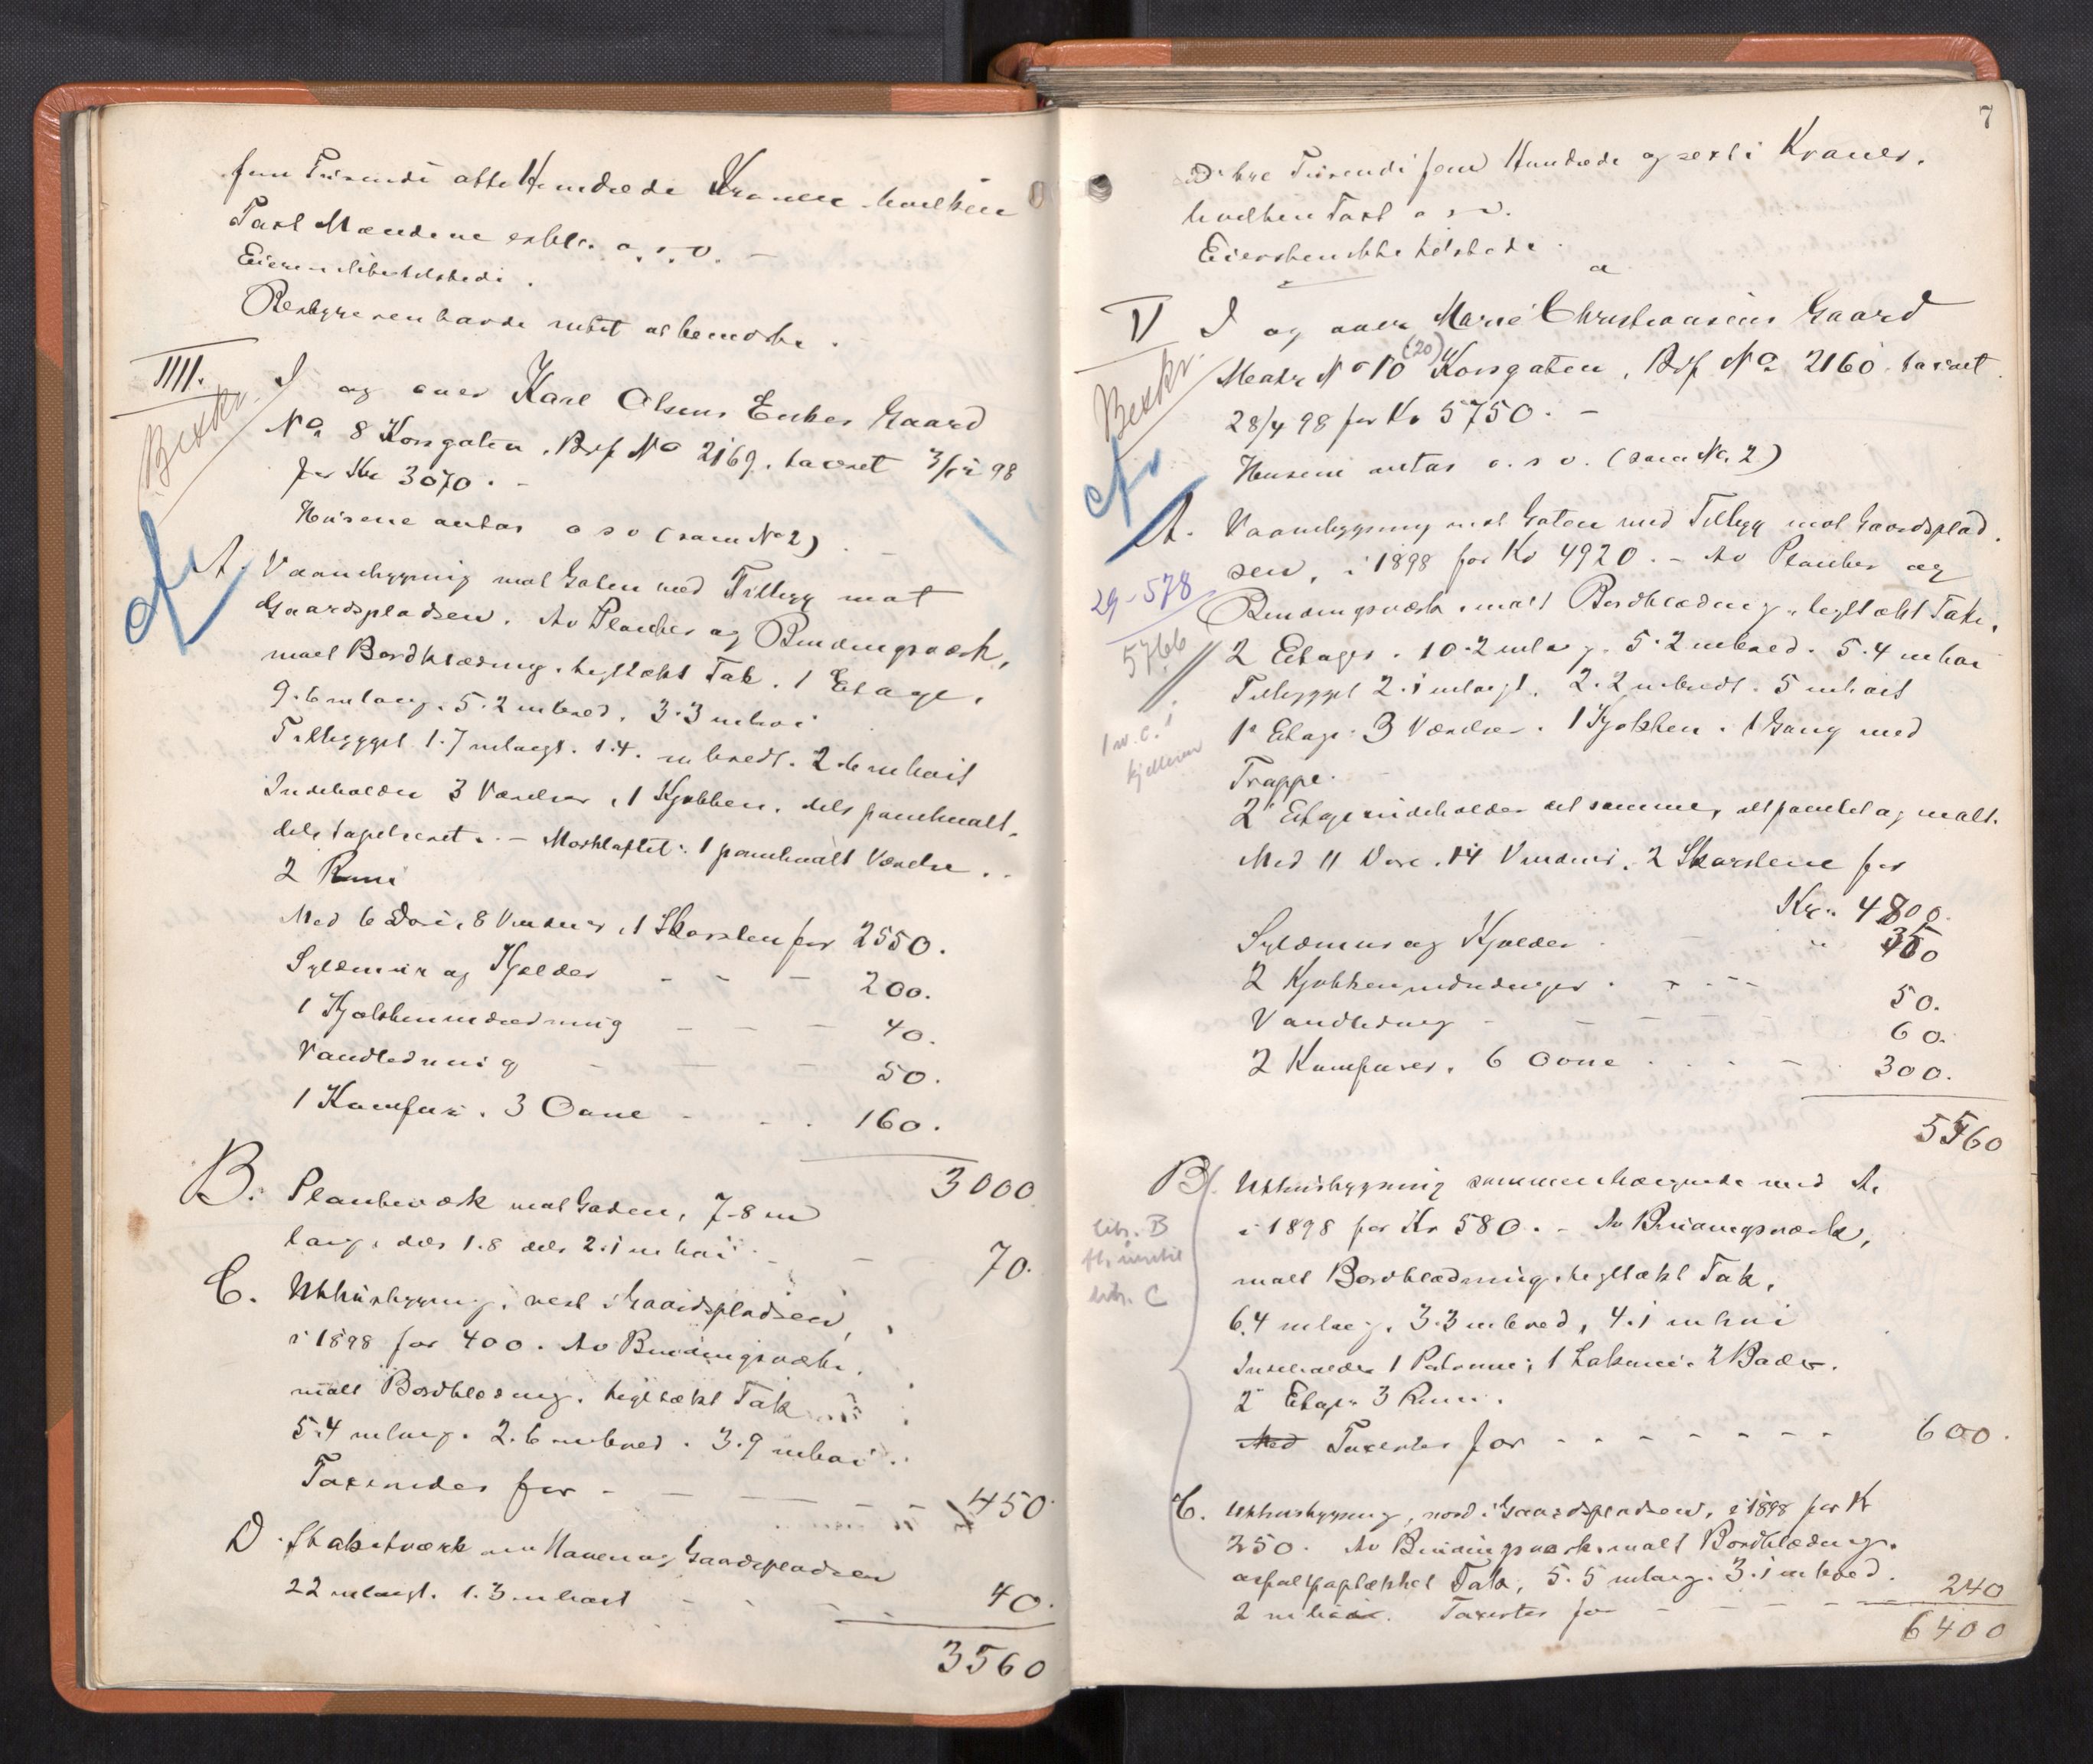 fem Tusende otte Hundrede Kroner hvilken
Taxt Mændene erklr. o. s. v. –
Eieren ikke tilstede.
Bestyreren havde intet at bemærke.
IIII. I og over Karl Olsens Enkes Gaard
Beskr.
No 8 Korsgaten, Brf No 2169, taxeret 98
for Kr 3070. -
Husene antas o s v (som No 2). –
cfr
A. Vaanebygning mot Gaten med Tilbygg mot
Gaardspladsen. Av Planker og Bindingsverk,
malt Bordklædning, tegltækt Tak. 1 Etage,
9.6 m lang. 5.2 m bred. 3.3 m høi
Tilbygget 1.7 m langt. 1.4. m bredt. 2.6 m høit
Indeholder 3 Værelser, 1 Kjøkken, dels panelmalt,
dels tapetseret. – Mørkloftet: 1 panelmalt Værelse.
2 Rum
Med 6 Døre, 8 Vinduer, 1 Skorsten for 2550.
Syldmur og Kjælder - - - 200.
1 Kjøkkenindredning - - - 40.
Vandledning - - - 50.
1 Komfur. 3 Ovne - - . 160.
3000
B. Plankeværk mot Gaden, 7.8 m
lang, dels 1.8 dels 2.1 m høi - - 70.
C. Uthusbygning, vest i Gaardspladsen,
i 1898 for 400. Av Bindingsværk,
malt Bordklædning, tegltækt Tak
5.4 m lang. 2.6 m bred. 3.9 m høi.
Taxeredes for - - - - - 450.
D. Stakitværk om Haven og Gaardspladsen
22 m langt. 1.3 m høit - - - - 40.
3560
7
tre Tusende fem Hundrede og sexti Kroner,
hvilken Taxt o s v.
Eiersken ikke tilstede.
V I og over Marie Christiansens Gaard
Beskr.
Matr No 10 (20) Korsgaten, Brf No 2160, taxeret
28/4 98 for Kr 5750. –
Husene antas o. s v. (som No. 2)
cfr
A. Vaanebygning mot Gaten med Tilbygg mot Gaardsplad-
sen, i 1898 for Kr 4920. – Av Planker og
29-578
Bindingsværk, malt Bordklædning, tegltækt Tak,
5766
2 Etager. 10.2 m lang. 5.2 m bred. 5.4 m høi
Tilbygget 2.1 m langt, 2.2 m bredt. 5 m høit
1 w.c. i
kjelleren
1ste Etage: 3 Værelser. 1 Kjøkken. 1 Gang med
Trappe.
2 Etage indeholder det samme, alt panelet og malt.
Med 11 Døre. 14 Vinduer. 2 Skorstene for
Kr. 4800.
Syldmur og Kjælder - - " 350
2 Kjøkkenindredninger . - - - 50.
Vandledning - - - - - 60.
2 Komfurer, 6 Ovne . . - - 300.
5560
B. Uthusbygning sammenhængende med A.
i 1898 for Kr 580. – Av Bindingsværk,
litr. B
litr. C
malt Bordklædning, tegltækt Tak,
6.4 m lang, 3.3 m bred, 4.1 m høi
Indeholder 1 1 2 Boder.
2 Etage 3 Rum.
Med Taxertes for - - - - - - - 600.
C. Uthusbygning, nord i Gaardspladsen, i 1898 for Kr
250. Av Bindingsverk, malt Bordklædning,
asfaltpaptækket Tak, 5.5 m lang. 3.1 m bred.
2 m høi. Taxertes for - - - - - 240
6400